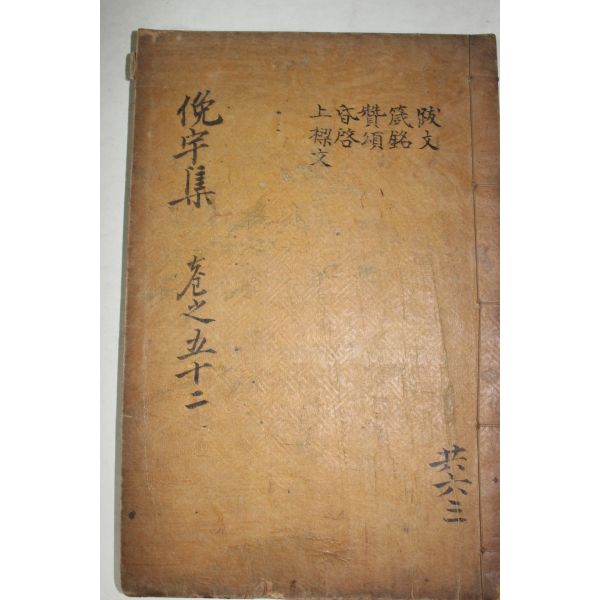 跋文
箴銘
贊頌
昏啓
上樑文
俛宇集 卷之五十二
共六三